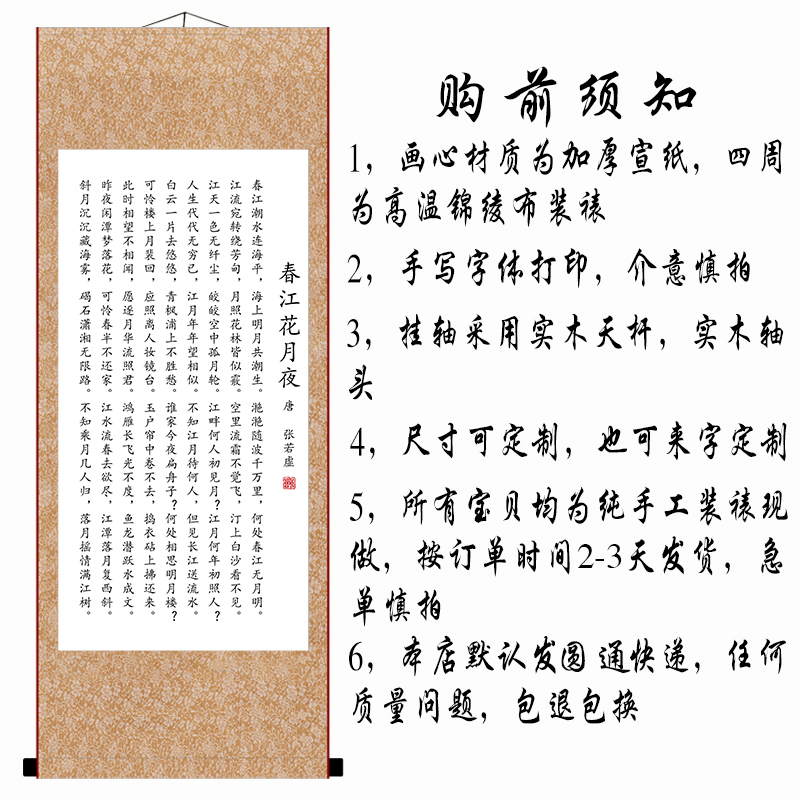 春江花月夜
唐 张若虚
春江潮水连海平，海上明月共潮生。滟滟随波千万里，何处春江无月明。
江流宛转绕芳甸，月照花林皆似霰。空里流霜不觉飞，汀上白沙看不见。
江天一色无纤尘，皎皎空中孤月轮。江畔何人初见月？江月何年初照人？
人生代代无穷已，江月年年望相似。不知江月待何人，但见长江送流水。
白云一片去悠悠，青枫浦上不胜愁。谁家今夜扁舟子？何处相思明月楼？
可怜楼上月裴回，应照离人妆镜台。玉户帘中卷不去，捣衣砧上拂还来。
此时相望不相闻，愿逐月华流照君。鸿雁长飞光不度，鱼龙潜跃水成文。
昨夜闲潭梦落花，可怜春半不还家。江水流春去欲尽，江潭落月复西斜。
斜月沉沉藏海雾，碣石潇湘无限路。不知乘月几人归，落月摇情满江树。
购前须知
1，画心材质为加厚宣纸，四周
为高温锦绫布装裱
2，手写字体打印，介意慎拍
3，挂轴采用实木天杆，实木轴
头
4，尺寸可定制，也可来字定制
5，所有宝贝均为纯手工装裱现
做，按订单时间2-3天发货，急
单慎拍
6，本店默认发圆通快递，任何
质量问题，包退包换